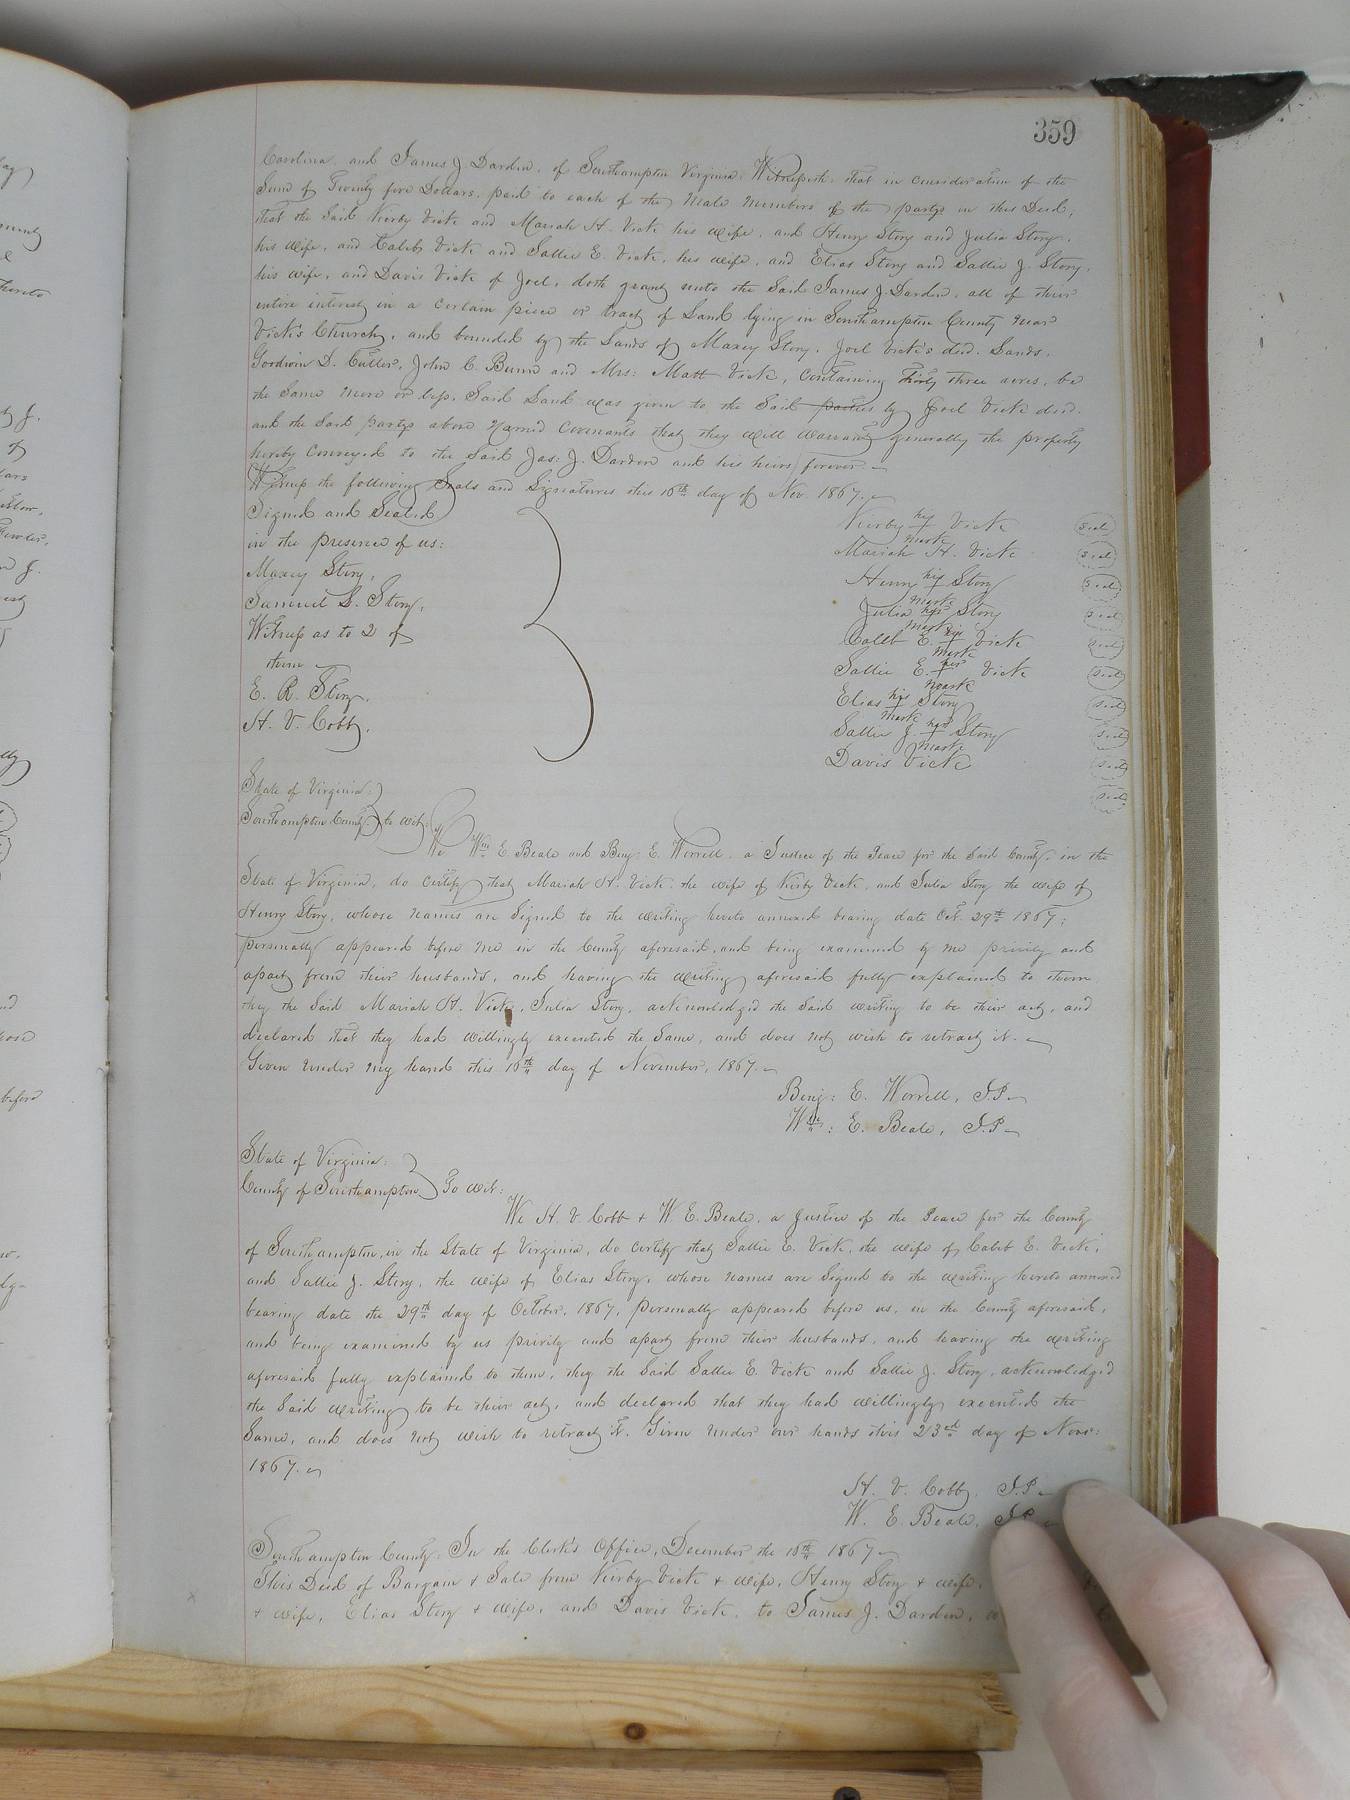 359
Carolina, and James J. Darden, of Southampton Virginia, Witnesseth, that in consideration of the
Sum of Twenty five Dollars, paid to each of the Male members of the party in this Deed,
that the Said Kirby Vick and Mariah H. Vick his wife, and Henry Story and Julia Story,
his wife, and Caleb Vick and Sallie E. Vick, his wife, and Elias Story and Sallie J. Story,
his wife, and Davis Vick of Joel, doth grant unto the Said James J. Darden, all of their
entire interest in a certain piece or tract of Land lying in Southampton County near
Vick's Church, and bounded by the Lands of Maxey Story, Joel Vick's decd. Lands,
Goodwin D. Cutler, John C. Bunn and Mrs: Matt Vick, containing Thirty three acres, be
the Same more or less, Said Land was given to the Said parties by Joel Vick decd.
and the Said partys above named covenants that they will warrant generally the property
hereby conveyed to the Said Jas: J. Darden and his heirs forever.
Witness the following Seals and Signatures this 10th day of Nov. 1867.
Signed and Sealed
in the presence of us:
Maxey Story,
Samuel S. Story,
Witness as to 2 of
them
E. R. Story,
H. V. Cobb,
Kirby his + mark Vick Seal
Mariah H. Vick Seal
Henry his + mark Story Seal
Julia her + mark Story Seal
Caleb E. his + mark Vick Seal
Sallie E. her + mark Vick Seal
Elias his + mark Story Seal
Sallie J. her + mark Story Seal
Davis Vick Seal
Seal
State of Virginia:
Southampton County, to wit:
We Wm E. Beale and Benj: E. Worrell, a Justice of the Peace for the Said County, in the
State of Virginia, do certify that Mariah H. Vick, the wife of Kirby Vick, and Julia Story the wife of
Henry Story, whose names are Signed to the writing hereto annexed bearing date Oct. 29th 1867;
personally appeared before me in the County aforesaid, and being examined by me privily and
apart from their husbands, and having the writing aforesaid fully explained to them
they the Said Mariah H. Vick, Julia Story, acknowledged the Said writing to be their act, and
declared that they had willingly executed the Same, and does not wish to retract it.
Given under my hand this 10th day of November, 1867.
Benj: E. Worrell, J.P.
Wm: E. Beale, J.P.
State of Virginia:
County of Southampton To wit:
We H. V. Cobb + W. E. Beale, a Justice of the Peace for the County
of Southampton, in the State of Virginia, do certify that Sallie E. Vick, the wife of Caleb E. Vick,
and Sallie J. Story, the wife of Elias Story, whose names are Signed to the writing hereto annexed
bearing date the 29th day of October, 1867, personally appeared before us, in the County aforesaid,
and being examined by us privily and apart from their husbands, and having the writing
aforesaid fully explained to them, they the Said Sallie E. Vick and Sallie J. Story, acknowledged
the Said writing to be their act, and declared that they had willingly executed the
Same, and does not wish to retract it. Given under our hands this 23rd day of Nov:
1867.
H. V. Cobb, J.P.
W. E. Beale, J.P.
Southampton County: In the Clerk's Office, December the 10th 1867
This Deed of Bargain + Sale from Kirby Vick + wife, Henry Story + wife,
+ wife, Elias Story + wife, and Davis Vick, to James J. Darden,